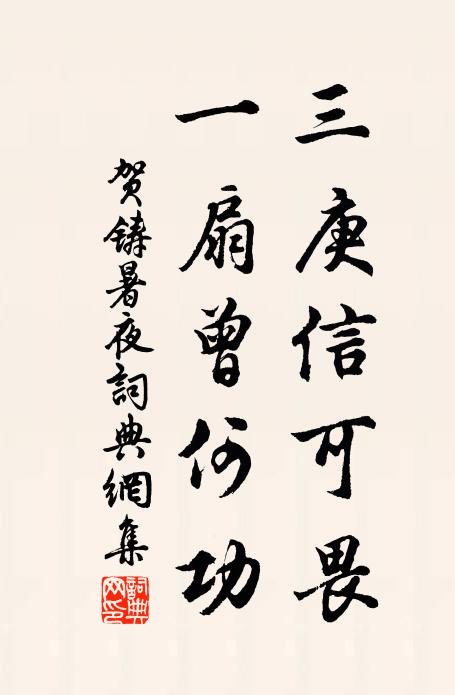 三庚信可畏
一扇曾何功
贺鑄暑夜詞典網集
詞典网印